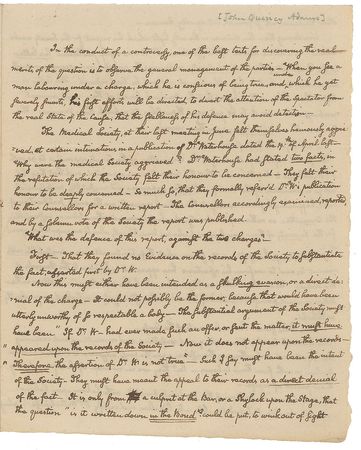 [John Quincy Adams]
In the conduct of a controversy, one of the best tests for discovering the real
merits of the question is to observe the general management of the parties — When you see a
man labouring under a charge, which he is conscious of being true, and under which he yet
secretly faints, his first efforts will be directed to divert the attention of the spectator from
the real State of the Cause, that the fallacies of his defence may avoid detection —
The Medical Society, at their last meeting in June felt themselves heinously aggrie-
-ved, at certain intimations in a publication of Dr. Waterhouse dated the 4th of April last —
Why were the medical Society aggrieved? Dr. Waterhouse had stated two facts, in
the refutation of which the Society felt their honour to be concerned — They felt their
honour to be deeply concerned — So much so, that they formally referd Dr. W's publication
to their Counsellors for a written report — The Counsellors accordingly examined, reported
and by a solemn vote of the Society the report was published
What was the defence of this report, against the two charges?
First — That they found no Evidence on the records of the Society to substantiate
the fact, asserted first by Dr. W.
Now this must either have been intended as a shuffling evasion, or a direct de-
-nial of the charge — It could not possibly be the former, because that would have been
utterly unworthy of so respectable a body — The substantial argument of the Society must
have been "If Dr. W— had ever made such an offer, or sent the matter, it must have
"appeared upon the records of the Society — Now it does not appear upon the records —
"Therefore the assertion of Dr. W is not true" — Such I say must have been the intent
of the Society — They must have meant the appeal to their records as a direct denial
of the fact — It is only from a culprit at the Bar, or a Shylock upon the Stage, that
the question "is it written down in the Bond"? could be put, to wink out of sight